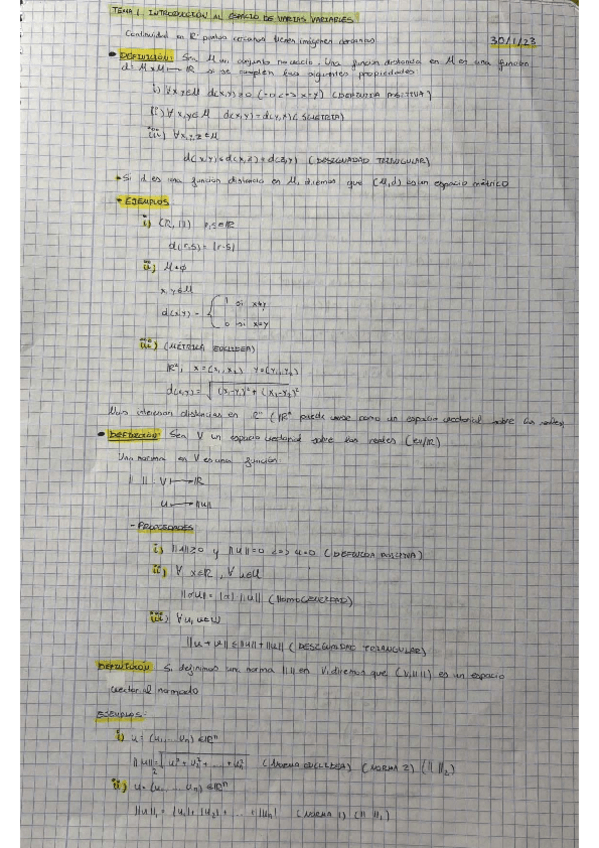 TEMA 1. INTRODUCCIÓN AL ESPACIO DE VARIAS VARIABLES
Continuidad en R: puntos cercanos tienen imágenes cercanas
30/1/23
• DEFINICIÓN: Sea M un conjunto no vacío. Una función distancia en M es una función
d: M x M → R si se cumplen las siguientes propiedades
i) ∀x,y∈M d(x,y)≥0 (=0 <=> x=y) (DEFINIDA POSITIVA)
ii) ∀x,y∈M d(x,y)=d(y,x) (SIMETRIA)
iii) ∀x,y,z∈M
d(x,y)≤d(x,z)+d(z,y) (DESIGUALDAD TRIANGULAR)
• Si d es una función distancia en M, diremos que (M,d) es un espacio métrico
• EJEMPLOS
i) (R, | |) r,s∈R
d(r,s)=|r-s|
ii) M≠ϕ
x,y∈M
d(x,y) = { 1 si x≠y
0 si x=y
iii) (MÉTRICA EUCLIDEA)
R², x=(x₁,x₂) y=(y₁,y₂)
d(x,y)=
Nos interesan distancias en (Rⁿ puede verse como un espacio vectorial sobre los reales)
• DEFINICIÓN: Sea V un espacio vectorial sobre los reales (ev/R)
Una norma en V es una función
|| || : V → R
u → ||u||
- PROPIEDADES
i) ||u||≥0 y ||u||=0 <=> u=0 (DEFINIDA POSITIVA)
ii) ∀ α∈R, ∀ u∈
||αu|| = |α| ||u|| (HOMOGENEIDAD)
iii) ∀u,
||u+u|| ≤ ||u||+||u|| (DESIGUALDAD TRIANGULAR)
DEFINICIÓN Si definimos una norma || || en V, diremos que (V,|| ||) es un espacio
vectorial normado
EJEMPLOS:
i) u=(u₁,...,uₙ)∈Rⁿ
||u||₂ = √u₁²+u₂²+...+uₙ² (NORMA EUCLIDEA) (NORMA 2) (|| ||₂)
ii) u=(u₁,...,uₙ)∈Rⁿ
||u||₁ = |u₁|+|u₂|+...+|uₙ| (NORMA 1) (|| ||₁)